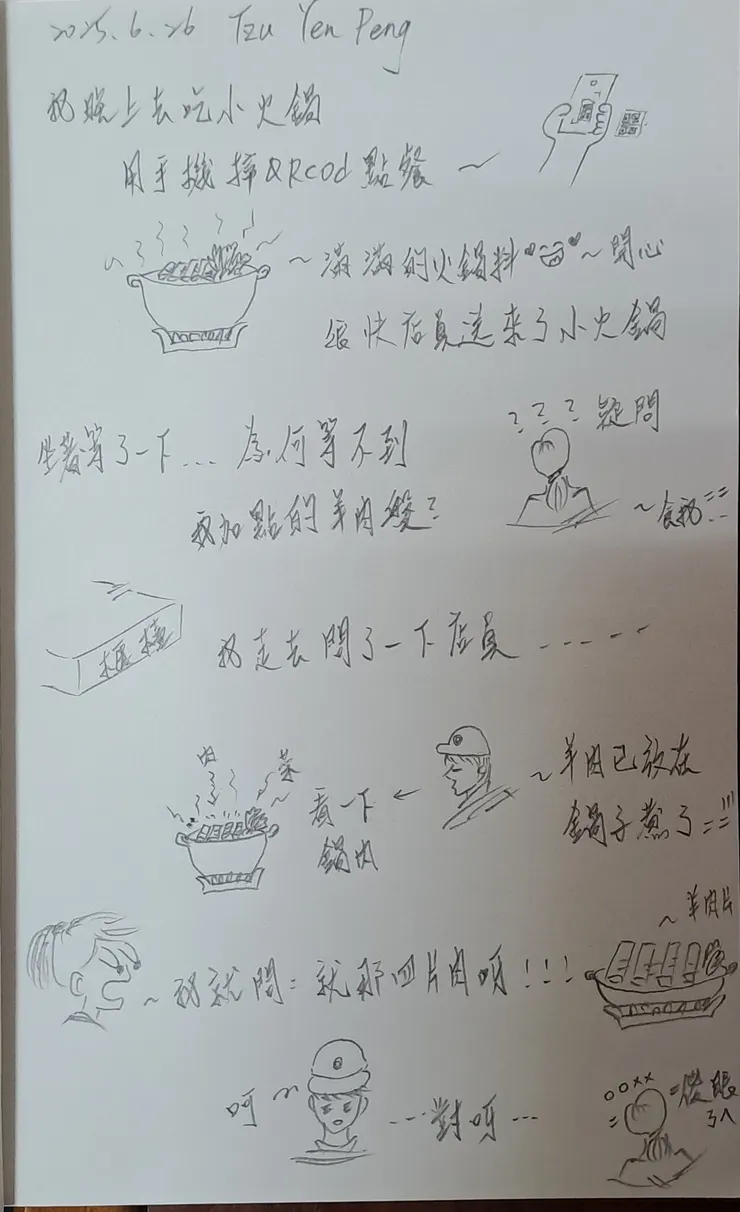 2025.6.26 Tzu Yen Peng
我晚上去吃小火鍋
用手機掃QRcod點餐～
～滿滿的火鍋料～開心
很快店員送來了小火鍋
疑問
坐著等了一下... 為何等不到
我加點的羊肉盤?
～食物
櫃檯
我走去問了一下店員------
肉
菜
看一下
鍋內
～羊肉已放在
鍋子煮了
～羊肉片
～我就問=就那四片肉呀!!!
呵～
...對呀...
傻眼
了